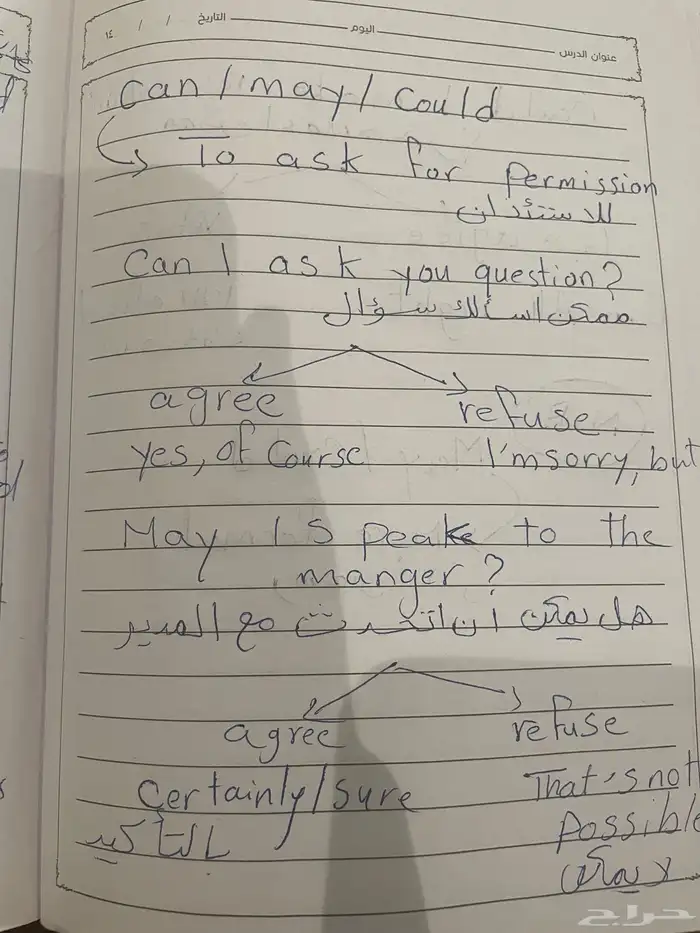 عنوان الدرس اليوم التاريخ / / ١٤
Can / may / Could
To ask for permission
للاستئذان
Can I ask you question?
ممكن اسألك سؤال
agree refuse
yes, of Course I'm sorry, but
May I Speake to the
manger?
هل يمكن أن اتحدث مع المدير
agree refuse
Certainly/sure That's not
بالتأكيد possible
لا يمكن
حراج